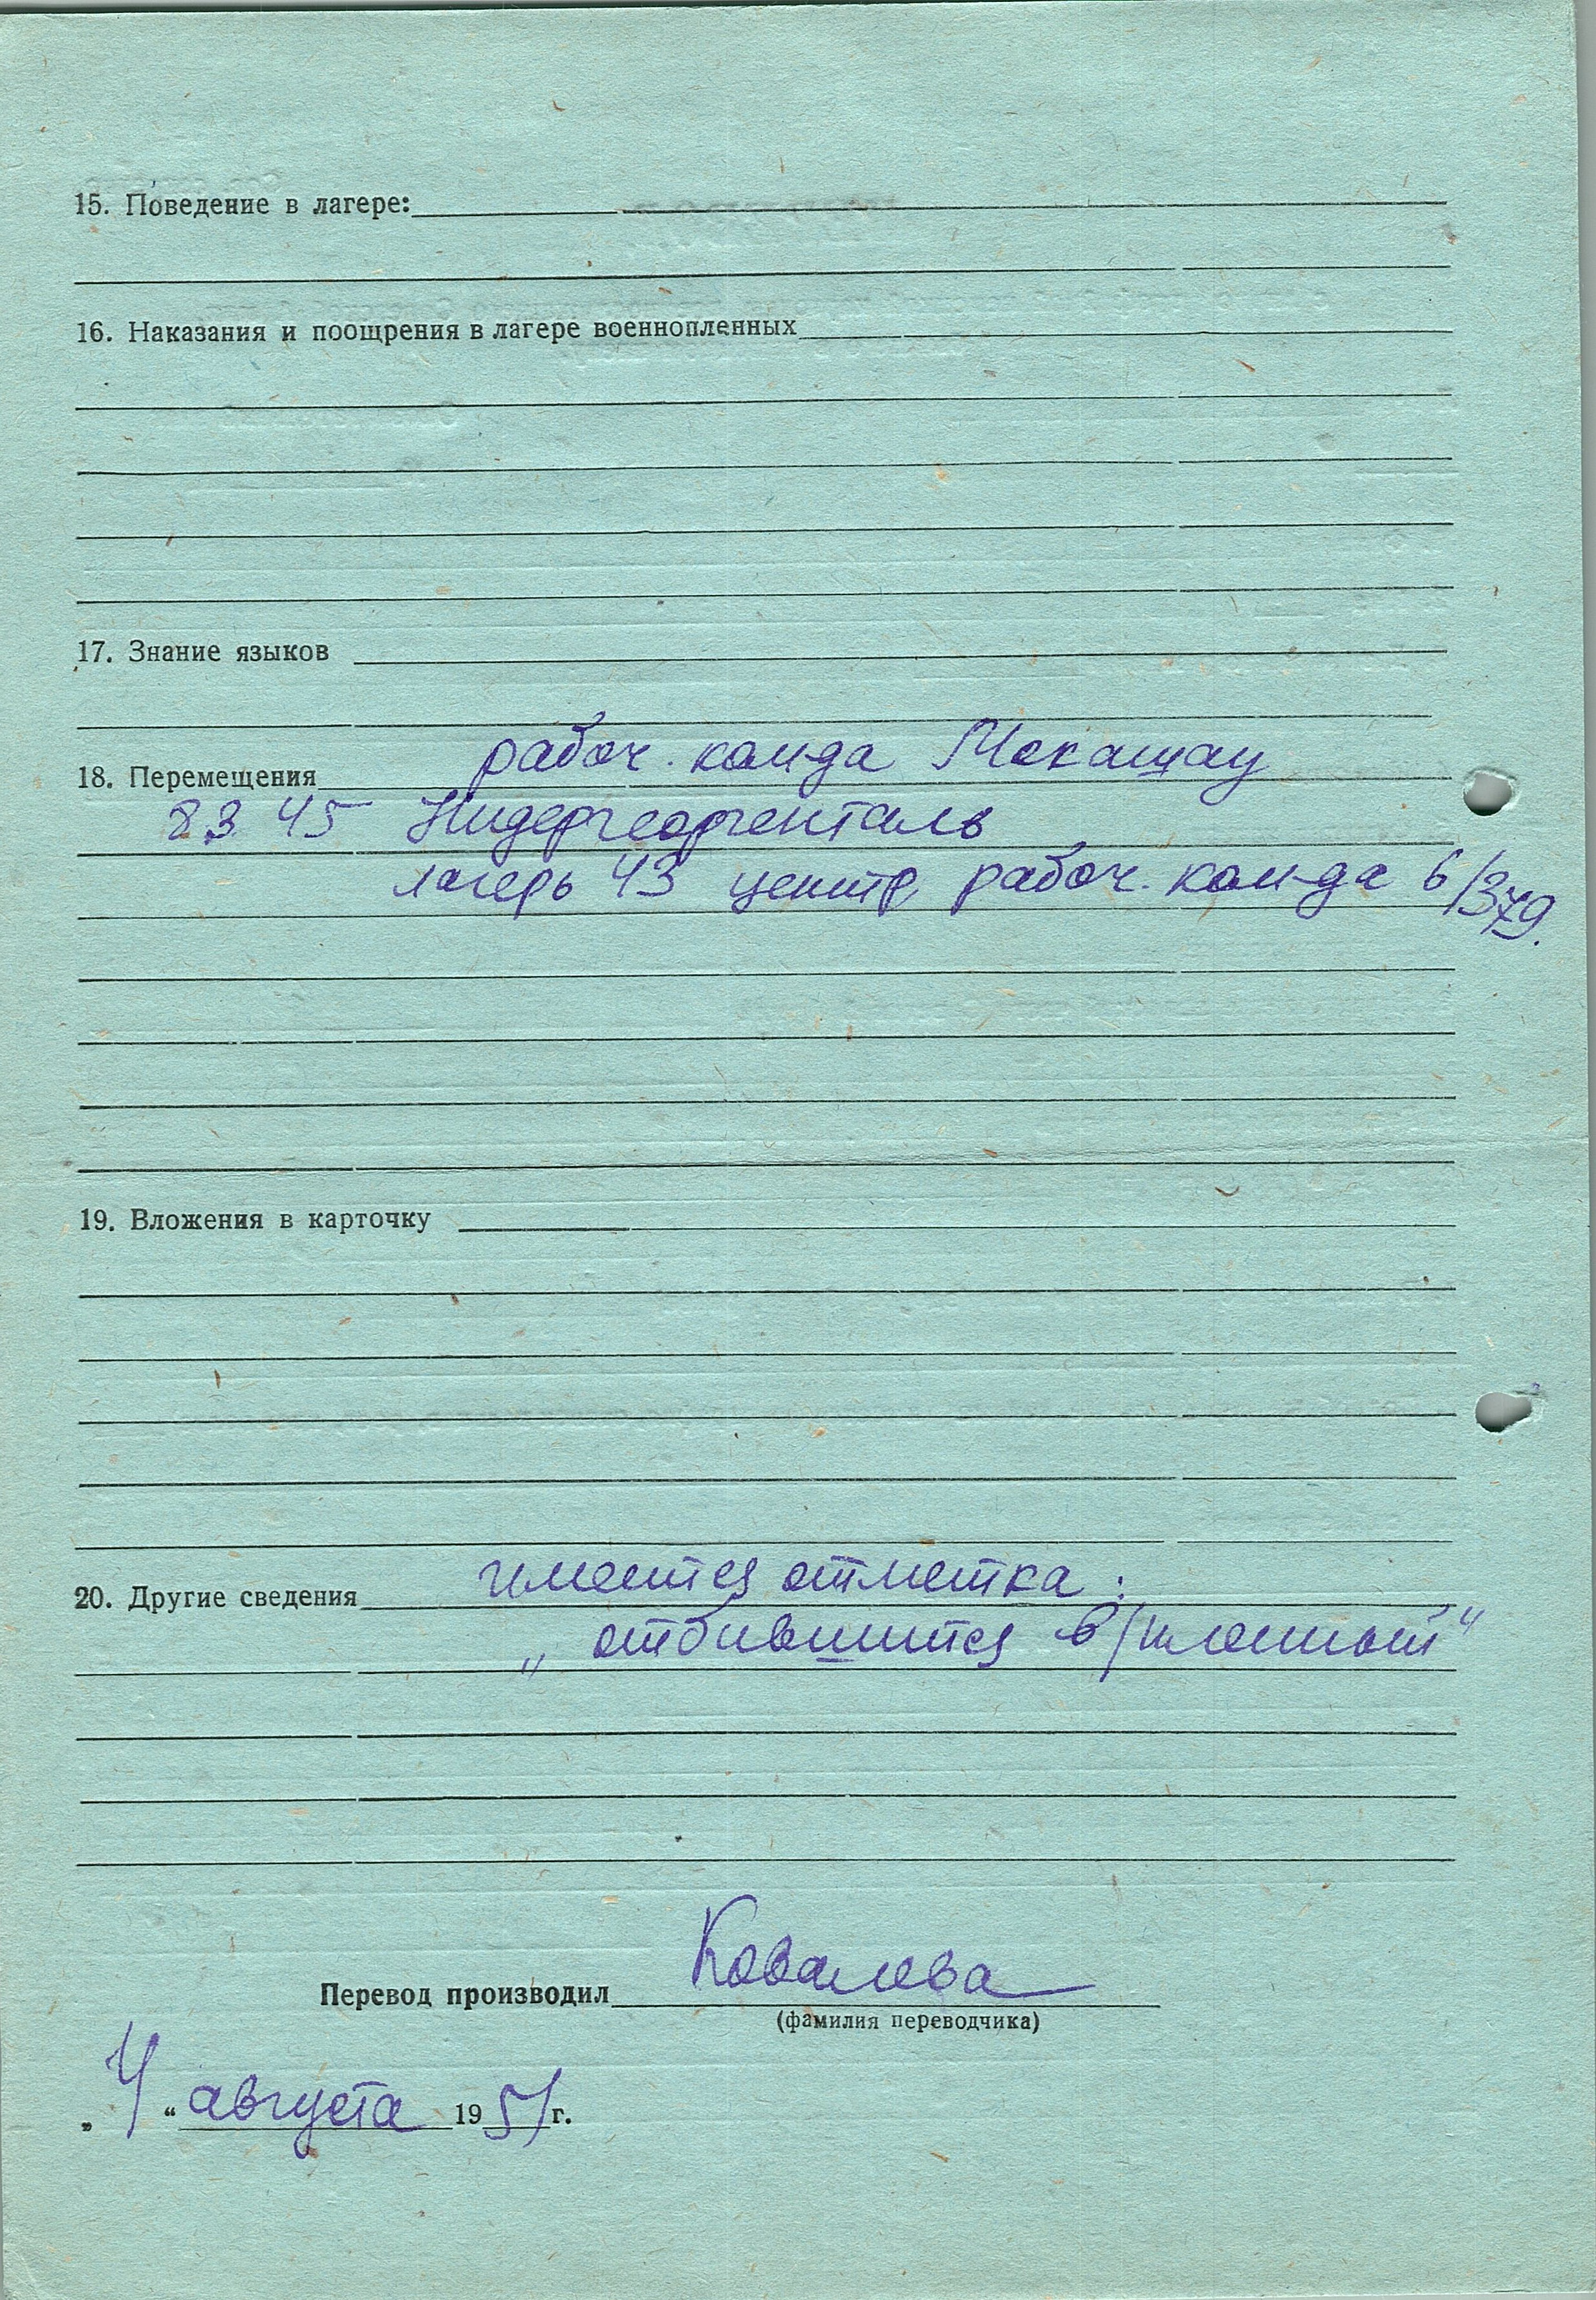 15. Поведение в лагере:
16. Наказания и поощрения в лагере военнопленных
17. Знание языков
18. Перемещения рабоч. ком-да Мокашау
8.3.45 Нидергеоргенталь
лагерь 43 центр. рабоч. ком-да 6/379.
19. Вложения в карточку
20. Другие сведения имеется отметка:
„отбившийся в/пленный“
Перевод производил Ковалева
(фамилия переводчика)
„4“ августа 1951 г.